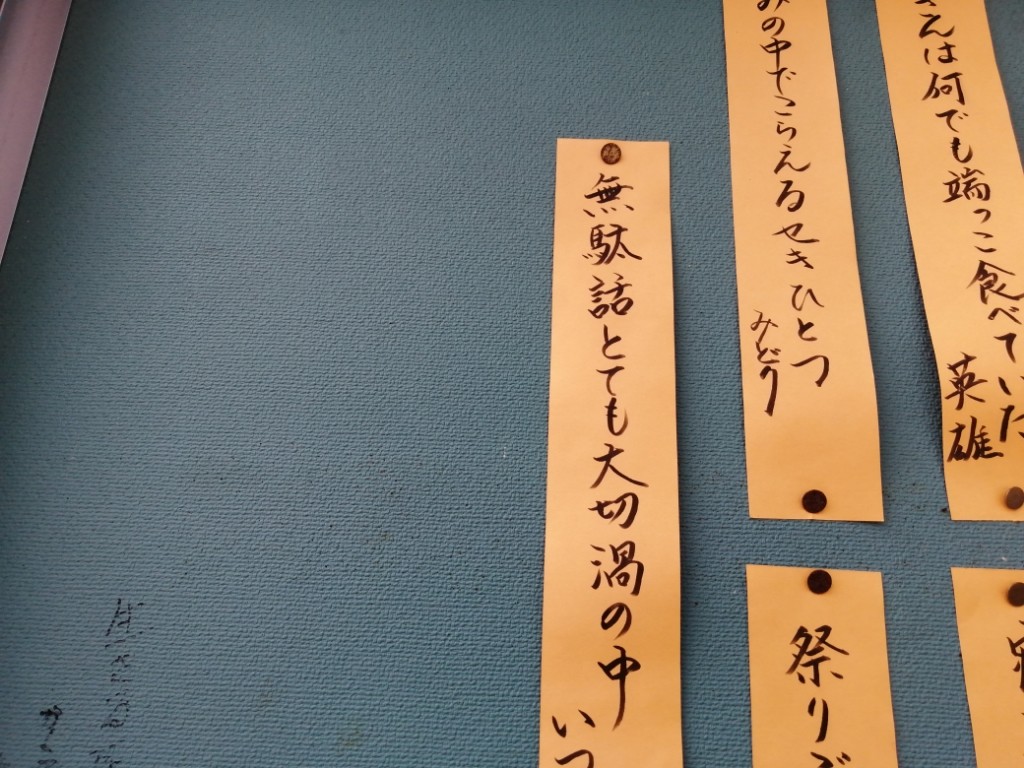 えは何でも端っこ食べていた
英雄
みの中でこらえるせきひとつ
みどり
無駄話とても大切渦の中
いつ
祭りご